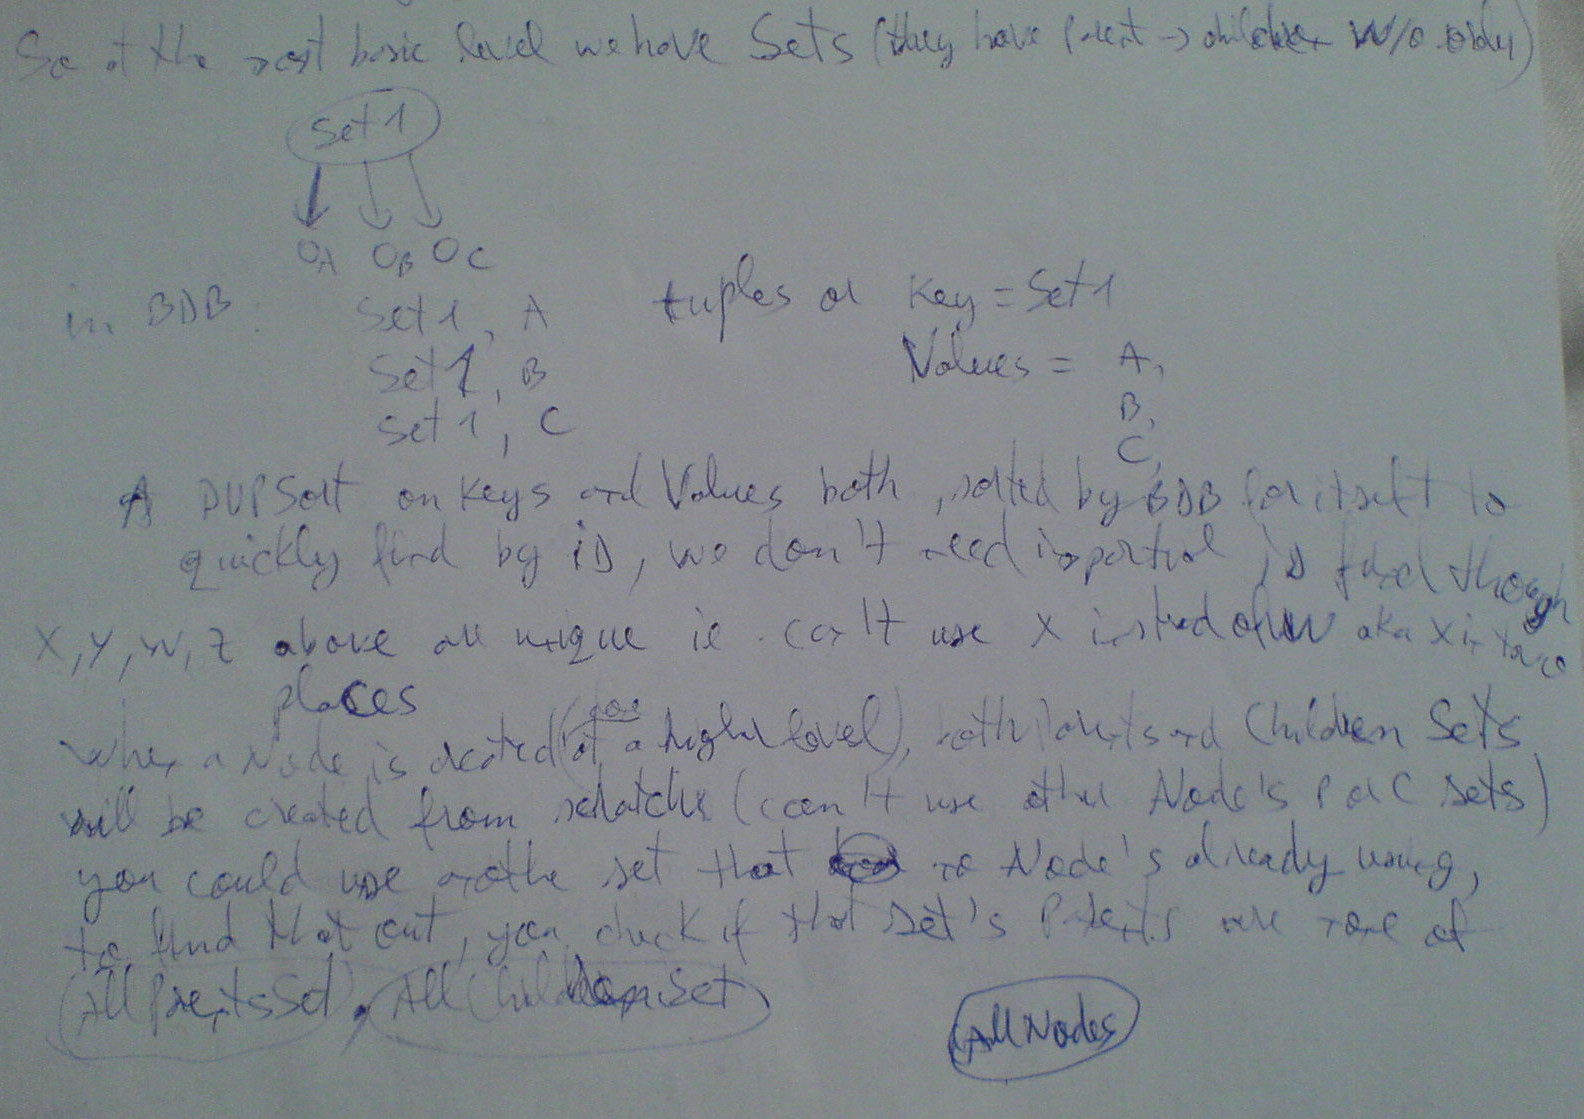 So at the most basic level we have Sets (they have Parent -> children w/o order)
Set 1
A B C
in BDB: Set 1, A tuples or Key = Set 1
Set 1, B Values = A,
Set 1, C B,
C,
A DUPSort on Keys and Values both, sorted by BDB for itself to
quickly find by iD, we don't need important iD though
X, Y, W, Z above are unique ie. can't use X instead of W aka X in two
places
when a Node is created (at a higher level), both Parents and Children Sets
will be created from scratch (can't use other Node's P or C sets)
you could use another set that no Node's already using,
to find that out, you check if that set's Parents are none of
AllParentsSet, AllChildrenSet
AllNodes